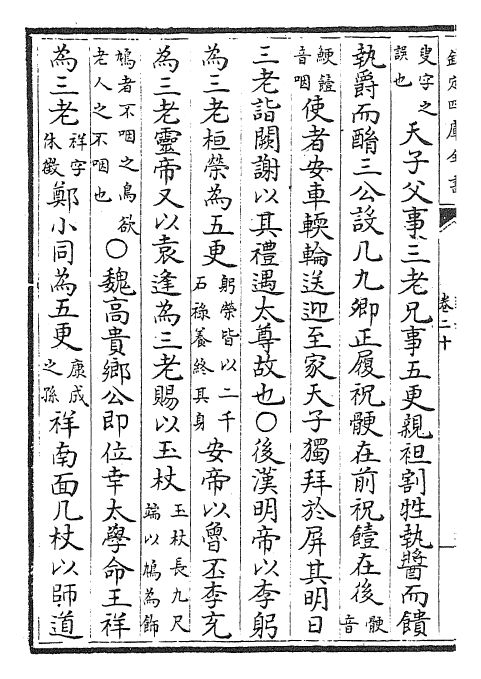 欽定四庫全書
卷二十
叟字之誤也天子父事三老兄事五更親袒割牲執醬而饋
執爵而酳三公設几九卿正履祝骾在前祝饐在後骾音
鯁饐音咽使者安車輭輪送迎至家天子獨拜於屏其明日
三老詣闕謝以其禮遇太尊故也○後漢明帝以李躬
為三老桓榮為五更躬榮皆以二千石祿養終其身安帝以魯丕李充
為三老靈帝又以袁逢為三老賜以玉杖玉杖長九尺端以鳩為飾
鳩者不咽之鳥欲老人之不咽也○魏高貴鄉公即位幸太學命王祥
為三老祥字休徵鄭小同為五更康成之孫祥南面几杖以師道